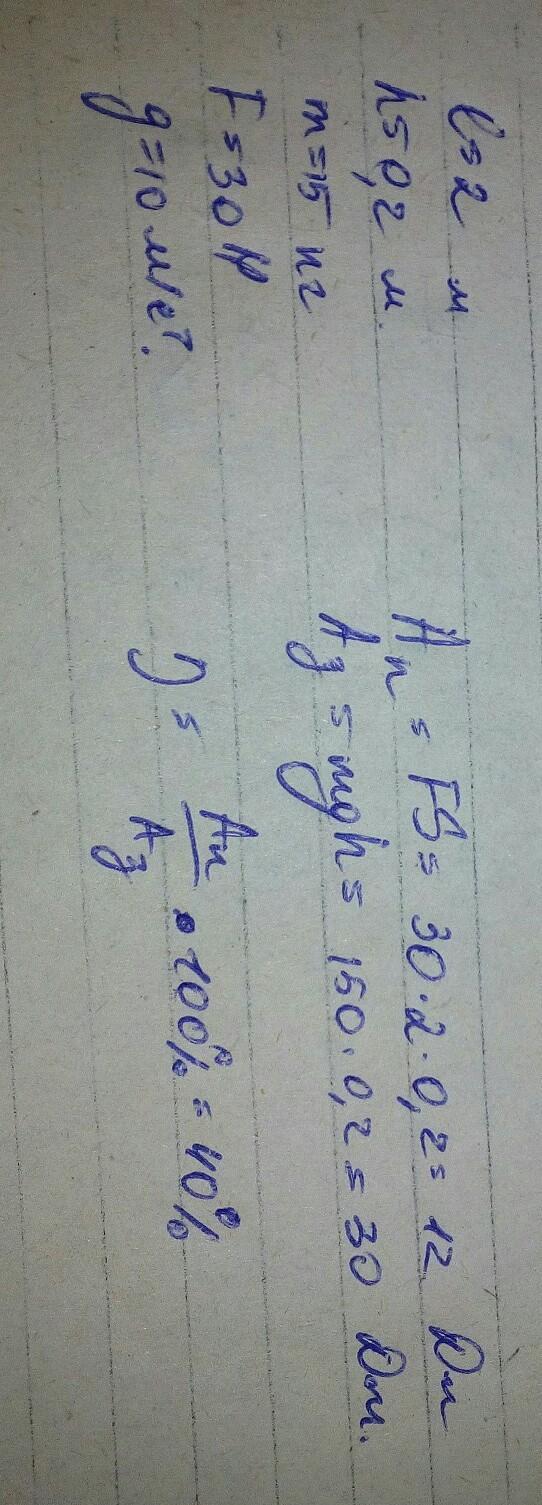 l = 2 м
h = 0,2 м.
m = 15 кг
F = 30 Н
g = 10 м/с².
Aп = FS = 30·2·0,2 = 12 Дж
Aз = mgh = 150·0,2 = 30 Дж.
η = Aп/Aз · 100% = 40%